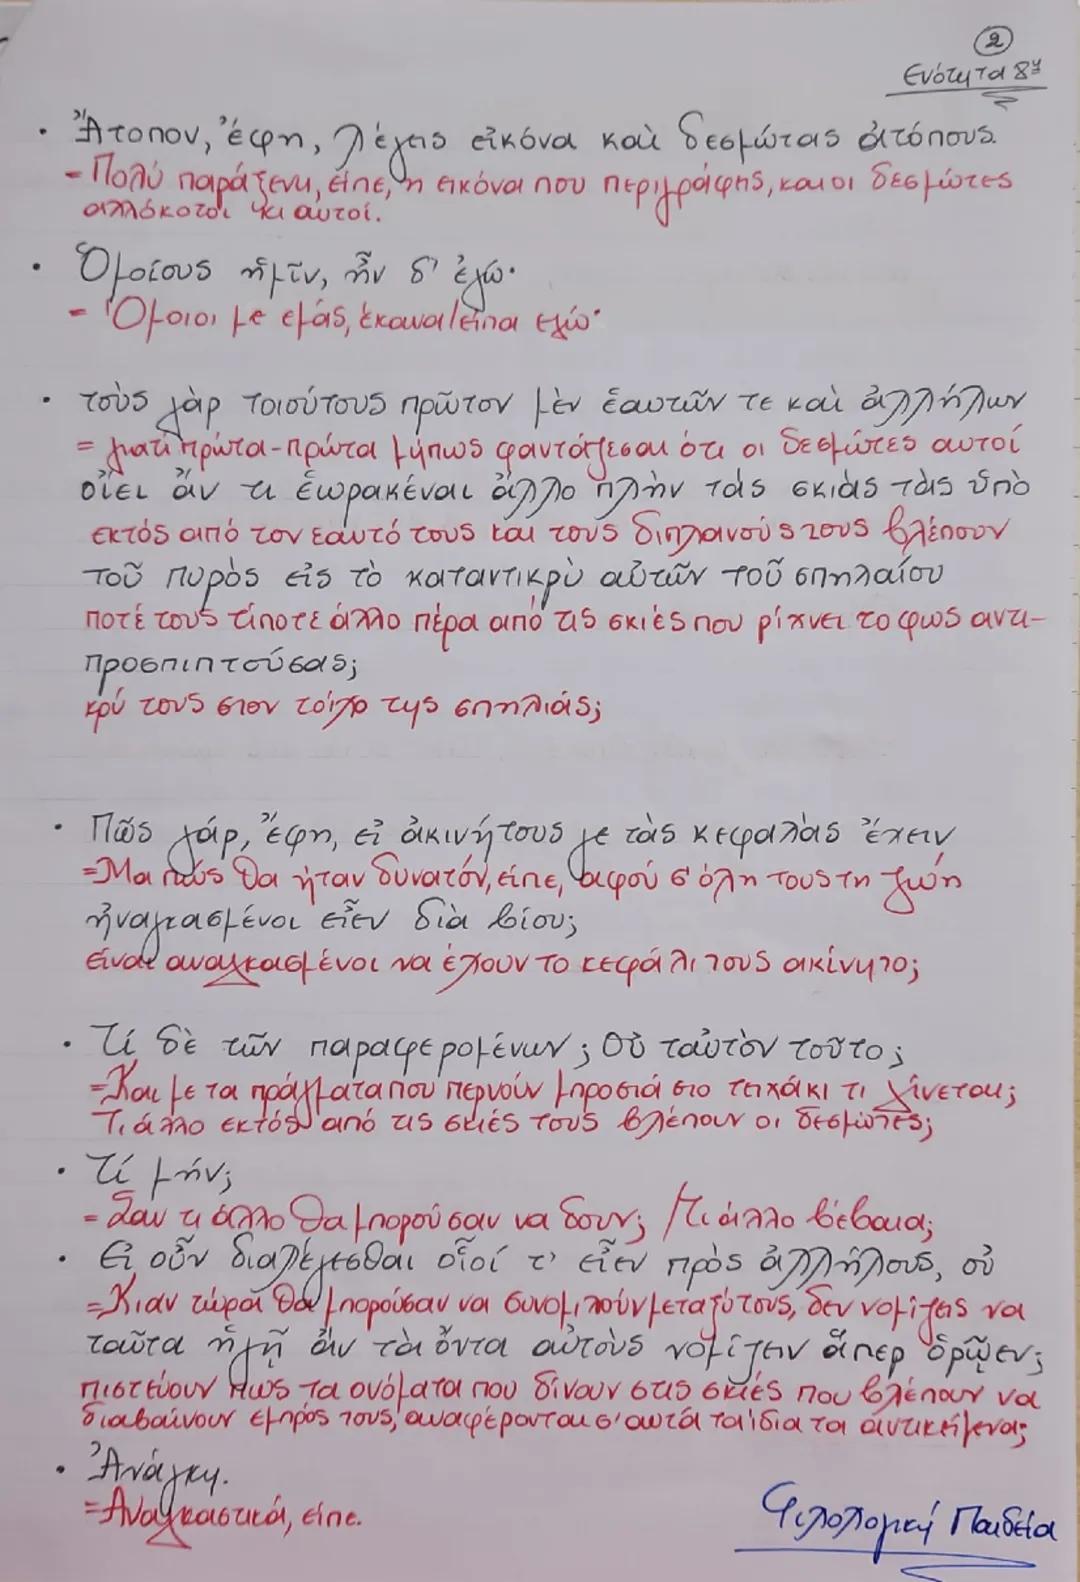 2
Ενότητα 8η
• Ἄτοπον, ἔφη, λέγεις εἰκόνα καὶ δεσμώτας ἀτόπους.
- Πολύ παράξενη, είπε, η εικόνα που περιγράφης, και οι δεσμώτες
αλλόκοτοι κι αυτοί.
• Ὁμοίους ἡμῖν, ἦν δ' ἐγώ·
- Όμοιοι με εμάς, έκανα/είπα εγώ·
• τοὺς γὰρ τοιούτους πρῶτον μὲν ἑαυτῶν τε καὶ ἀλλήλων
= γιατί πρώτα-πρώτα μήπως φαντάζεσαι ότι οι δεσμώτες αυτοί
οἴει ἄν τι ἑωρακέναι ἄλλο πλὴν τάς σκιὰς τὰς ὑπὸ
εκτός από τον εαυτό τους και τους διπλανούς τους βλέπουν
τοῦ πυρὸς εἰς τὸ καταντικρὺ αὐτῶν τοῦ σπηλαίου
ποτέ τους τίποτε άλλο πέρα από τις σκιές που ρίχνει το φως αντι-
προσπιπτούσας;
κρύ τους στον τοίχο της σπηλιάς;
• Πῶς γάρ, ἔφη, εἰ ἀκινήτους γε τὰς κεφαλὰς ἔχειν
=Μα πώς θα ήταν δυνατόν, είπε, αφού σ' όλη τους τη ζωή
ἠναγκασμένοι εἶεν διὰ βίου;
είναι αναγκασμένοι να έχουν το κεφάλι τους ακίνητο;
• Τί δὲ τῶν παραφερομένων; Οὐ ταὐτὸν τοῦτο;
=Και με τα πράγματα που περνούν μπροστά στο τειχάκι τι γίνεται;
Τι άλλο εκτός από τις σκιές τους βλέπουν οι δεσμώτες;
• Τί μήν;
= Σαν τι άλλο θα μπορούσαν να δουν; /Τι άλλο βέβαια;
• Εἰ οὖν διαλέγεσθαι οἷοί τ' εἶεν πρὸς ἀλλήλους, οὐ
=Κι αν τώρα θα μπορούσαν να συνομιλούν μεταξύ τους, δεν νομίζεις να
ταῦτα ἡγῇ ἂν τὰ ὄντα αὐτοὺς νομίζειν ἅπερ ὁρῷεν;
πιστεύουν πως τα ονόματα που δίνουν στις σκιές που βλέπουν να
διαβαίνουν εμπρός τους, αναφέρονται σ' αυτά τα ίδια τα αντικείμενα;
• Ἀνάγκη.
=Αναγκαστικά, είπε.
Φιλολογική Παιδεία